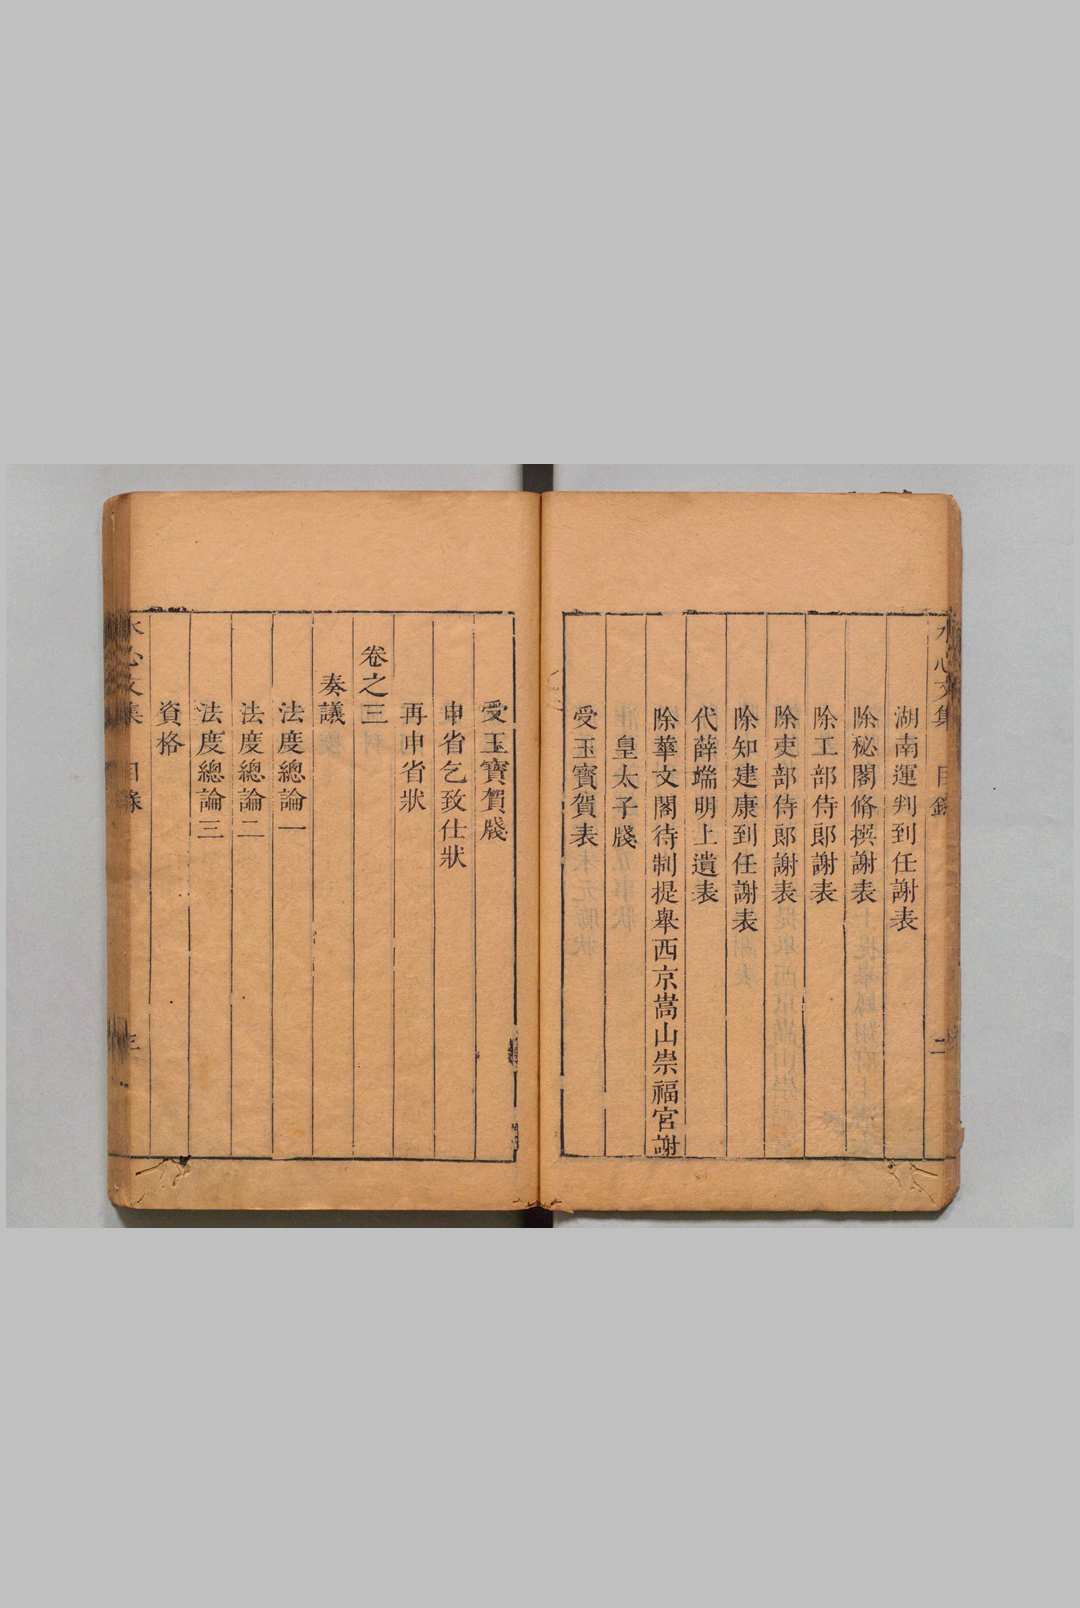 水心文集 目錄 二
湖南運判到任謝表
除秘閣脩撰謝表
除工部侍郎謝表
除吏部侍郎謝表
除知建康到任謝表
代薛端明上遺表
除華文閣待制提舉西京嵩山崇福宮謝
皇太子牋
受玉寶賀表
受玉寶賀牋
申省乞致仕狀
再申省狀
卷之三
奏議
法度總論一
法度總論二
法度總論三
資格
水心文集 目錄 三